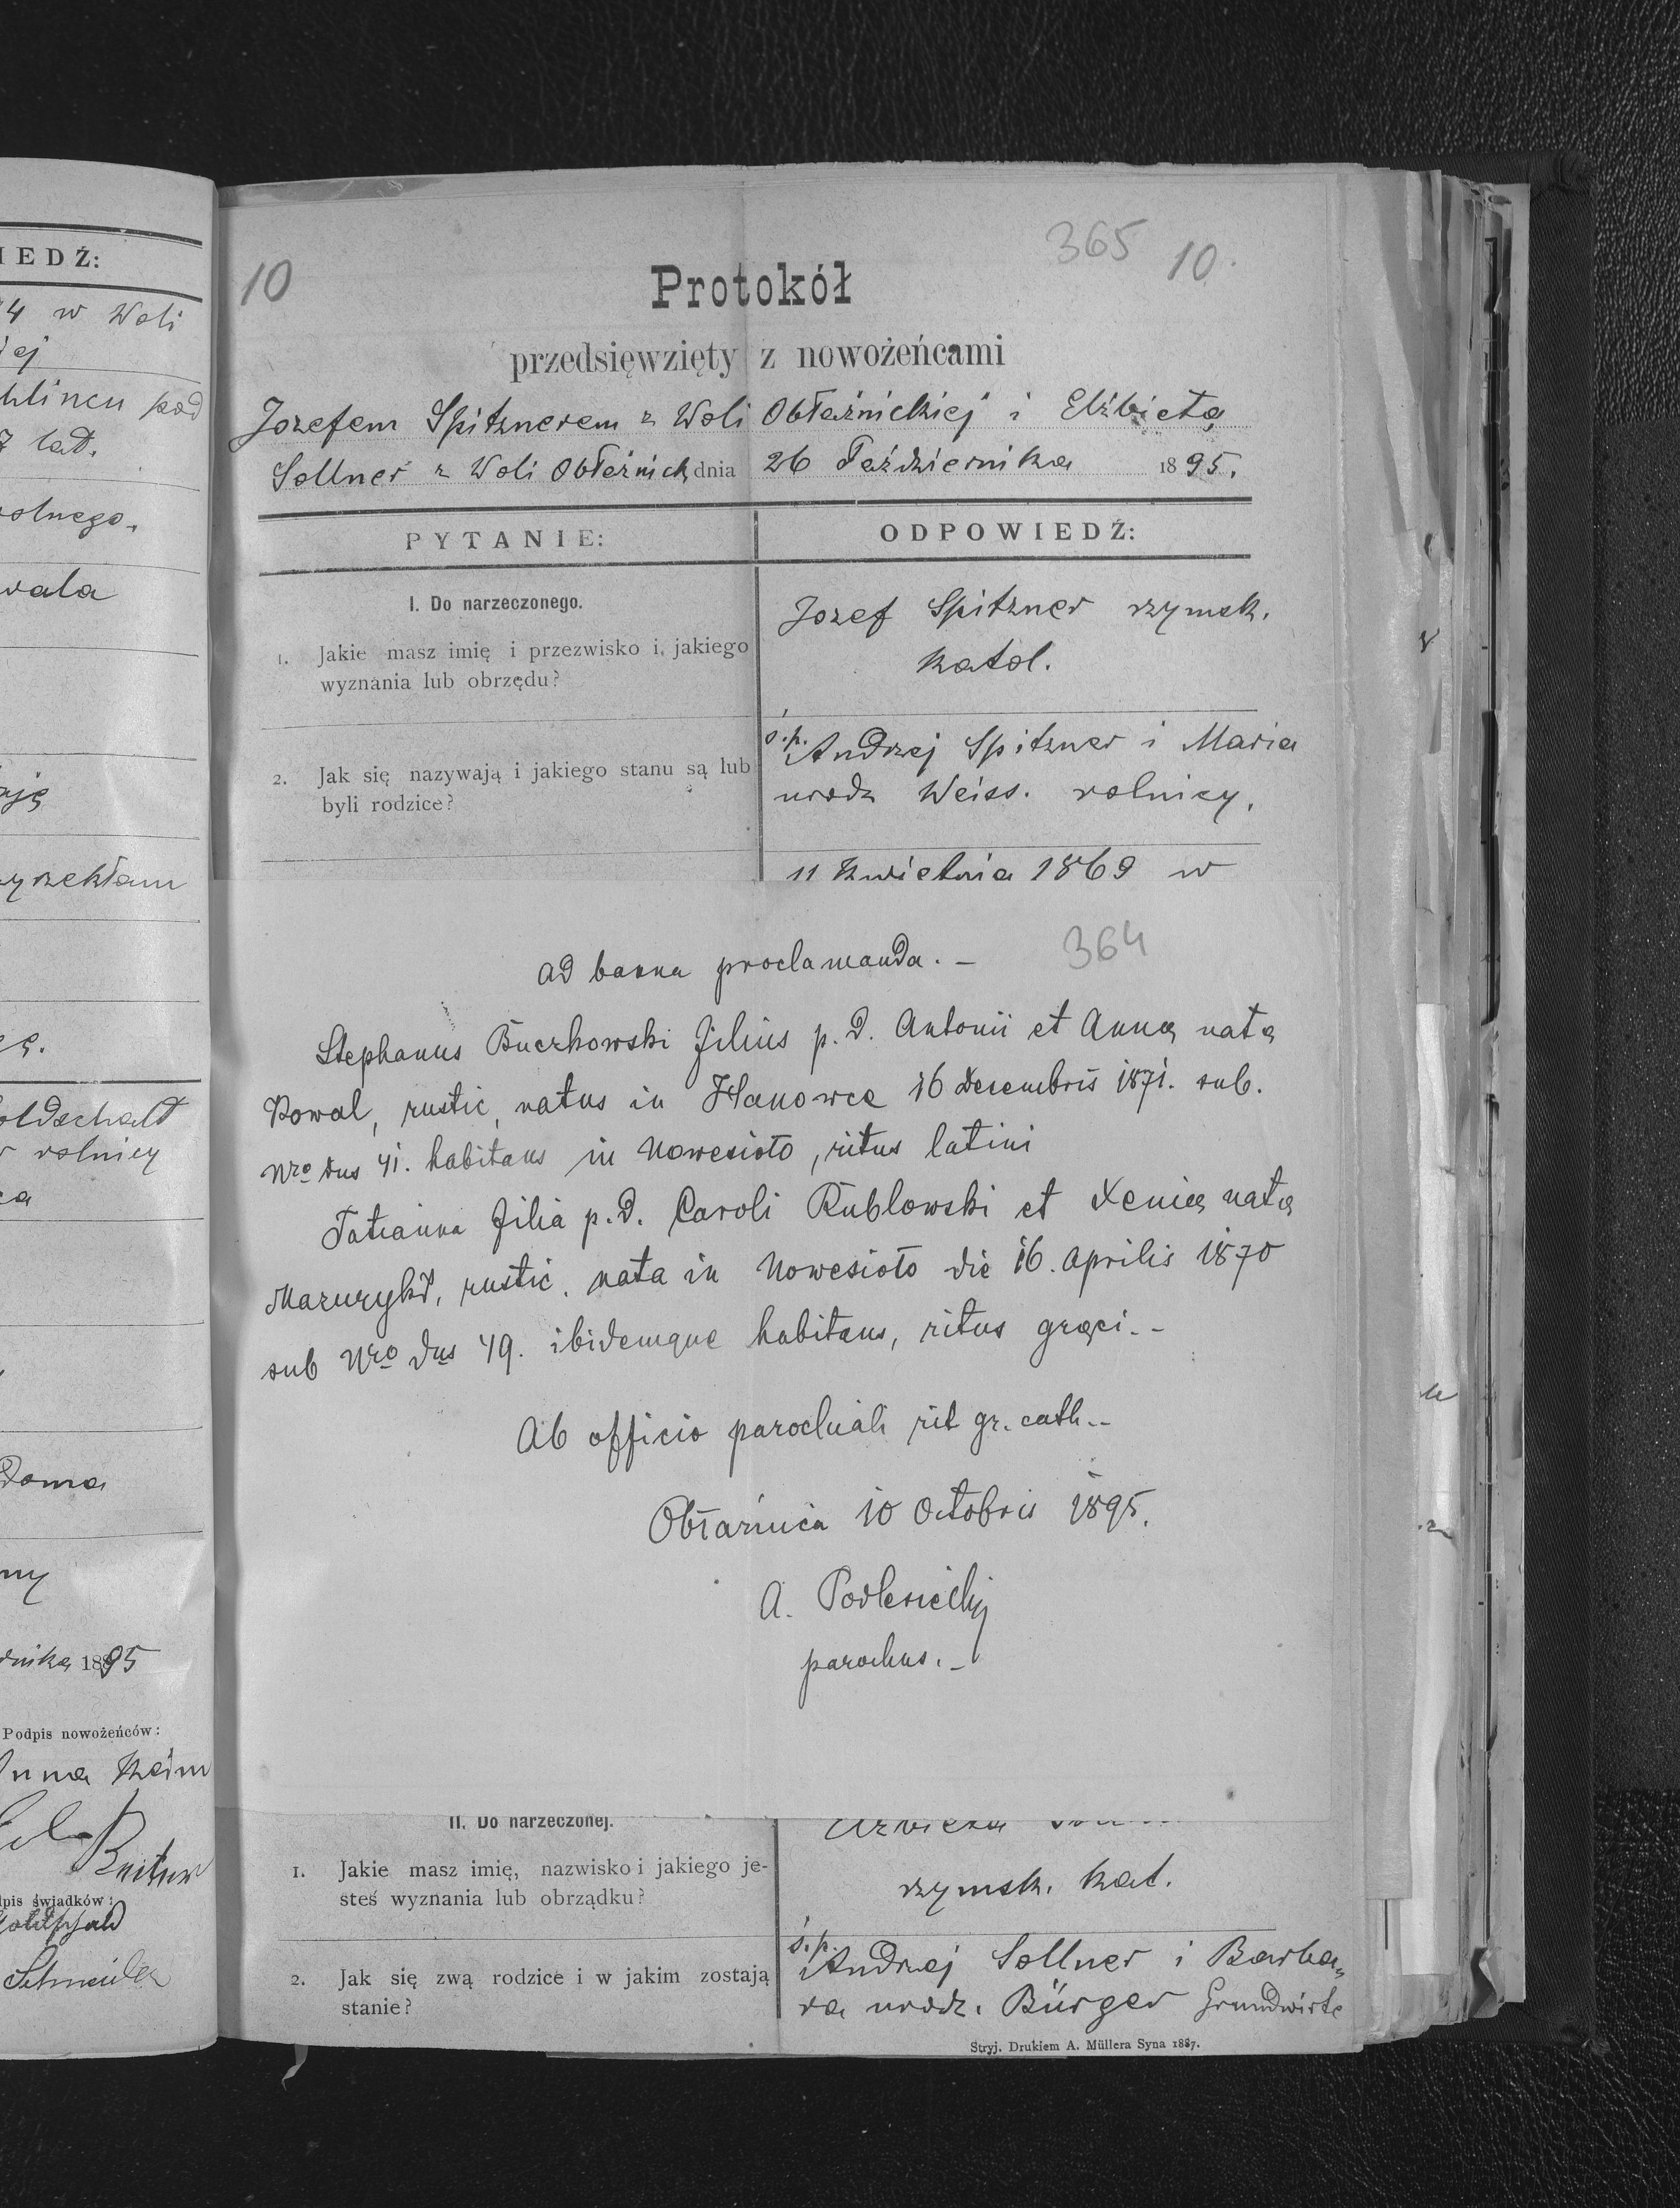 IEDŹ:
4 w Woli
ej
hlincu pod
7 lat.
rolnego.
wala
uję
rzekłam
ę.
oldschalt
rolnicy
ca
Doma
ny
rnika 1895
Podpis nowożeńców:
Anna Heim
pis świadków:
10
365 10.
Protokół
przedsięwzięty z nowożeńcami
Jozefem Spitznerem z Woli Obłaźnickiej i Elżbietą
Sollner z Woli Obłaźnick. dnia 26 Października 1895.
PYTANIE:
ODPOWIEDŹ:
I. Do narzeczonego.
1. Jakie masz imię i przezwisko i jakiego
wyznania lub obrzędu?
Jozef Spitzner rzymsk.
katol.
2. Jak się nazywają i jakiego stanu są lub
byli rodzice?
ś.p. Andrzej Spitzner i Maria
urodz Weiss. rolnicy.
11 Kwietnia 1869 w
364
ad banna proclamanda. –
Stephanus Buczkowski filius p. d. Antonii et Annæ natæ
Kowal, rustic, natus in Hanowce 16 Decembris 1871. sub.
Nro dus 41. habitans in Nowesioło, ritus latini
Tatianna filia p. d. Caroli Rublowski et Xeniæ natæ
Mazurykd, rustic. nata in Nowesioło die 16. Aprilis 1870
sub Nro dus 49. ibidemque habitans, ritus græci. –
Ab officio parochiali rit gr. cath. –
Obłaźnica 10 Octobris 1895.
A. Podlesieckij
parochus. –
II. Do narzeczonej.
1. Jakie masz imię, nazwisko i jakiego je-
steś wyznania lub obrządku?
rzymsk. kat.
2. Jak się zwą rodzice i w jakim zostają
stanie?
ś.p. Andrzej Sollner i Barba„
ra urodz. Bürger Grundwirte
Stryj. Drukiem A. Müllera Syna 1887.